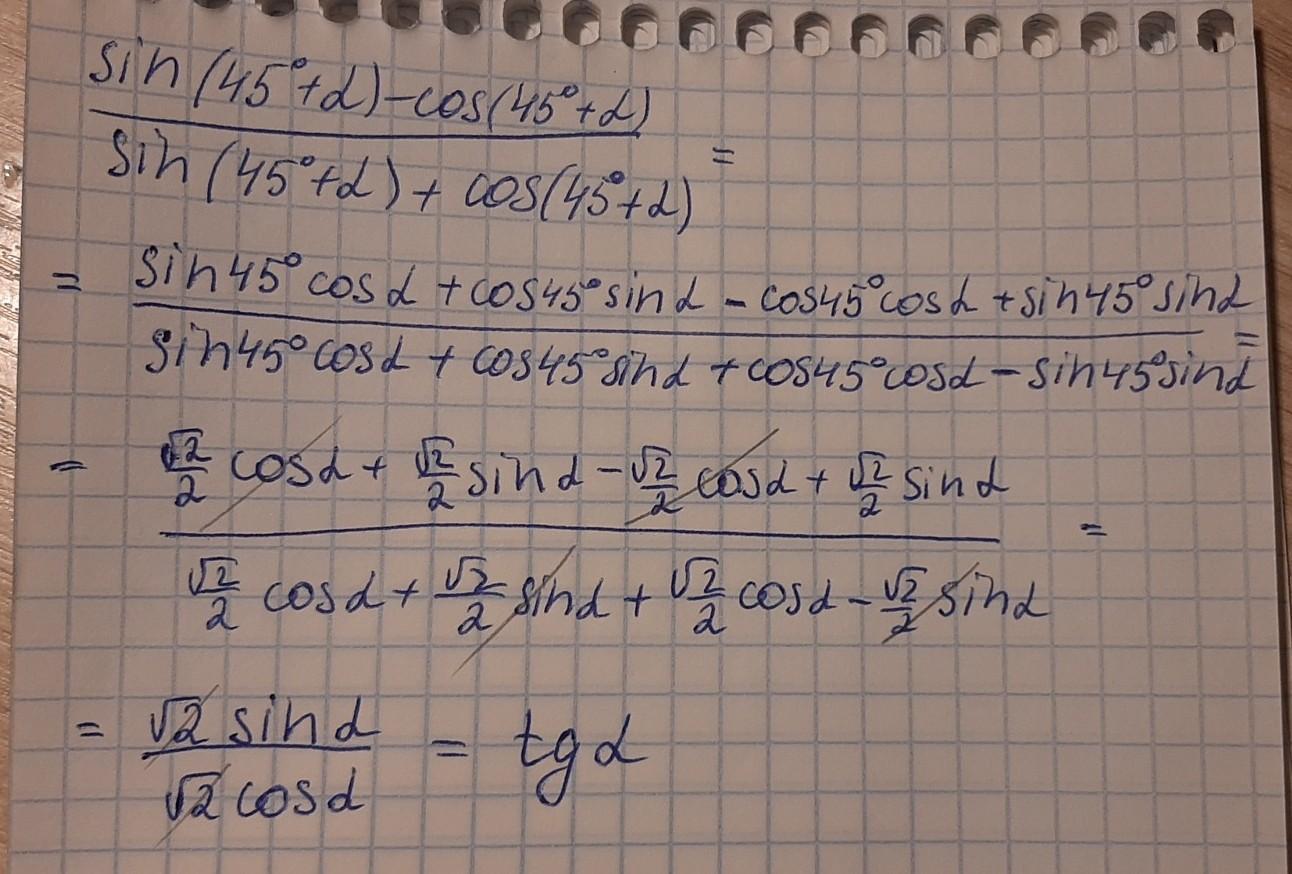 sin(45°+α)-cos(45°+α)
sin(45°+α)+cos(45°+α) =
= sin45°cosα+cos45°sinα-cos45°cosα+sin45°sinα
sin45°cosα+cos45°sinα+cos45°cosα-sin45°sinα =
= √2/2 cosα+√2/2 sinα-√2/2 cosα+√2/2 sinα
√2/2 cosα+√2/2 sinα+√2/2 cosα-√2/2 sinα =
= √2 sinα
√2 cosα = tgα